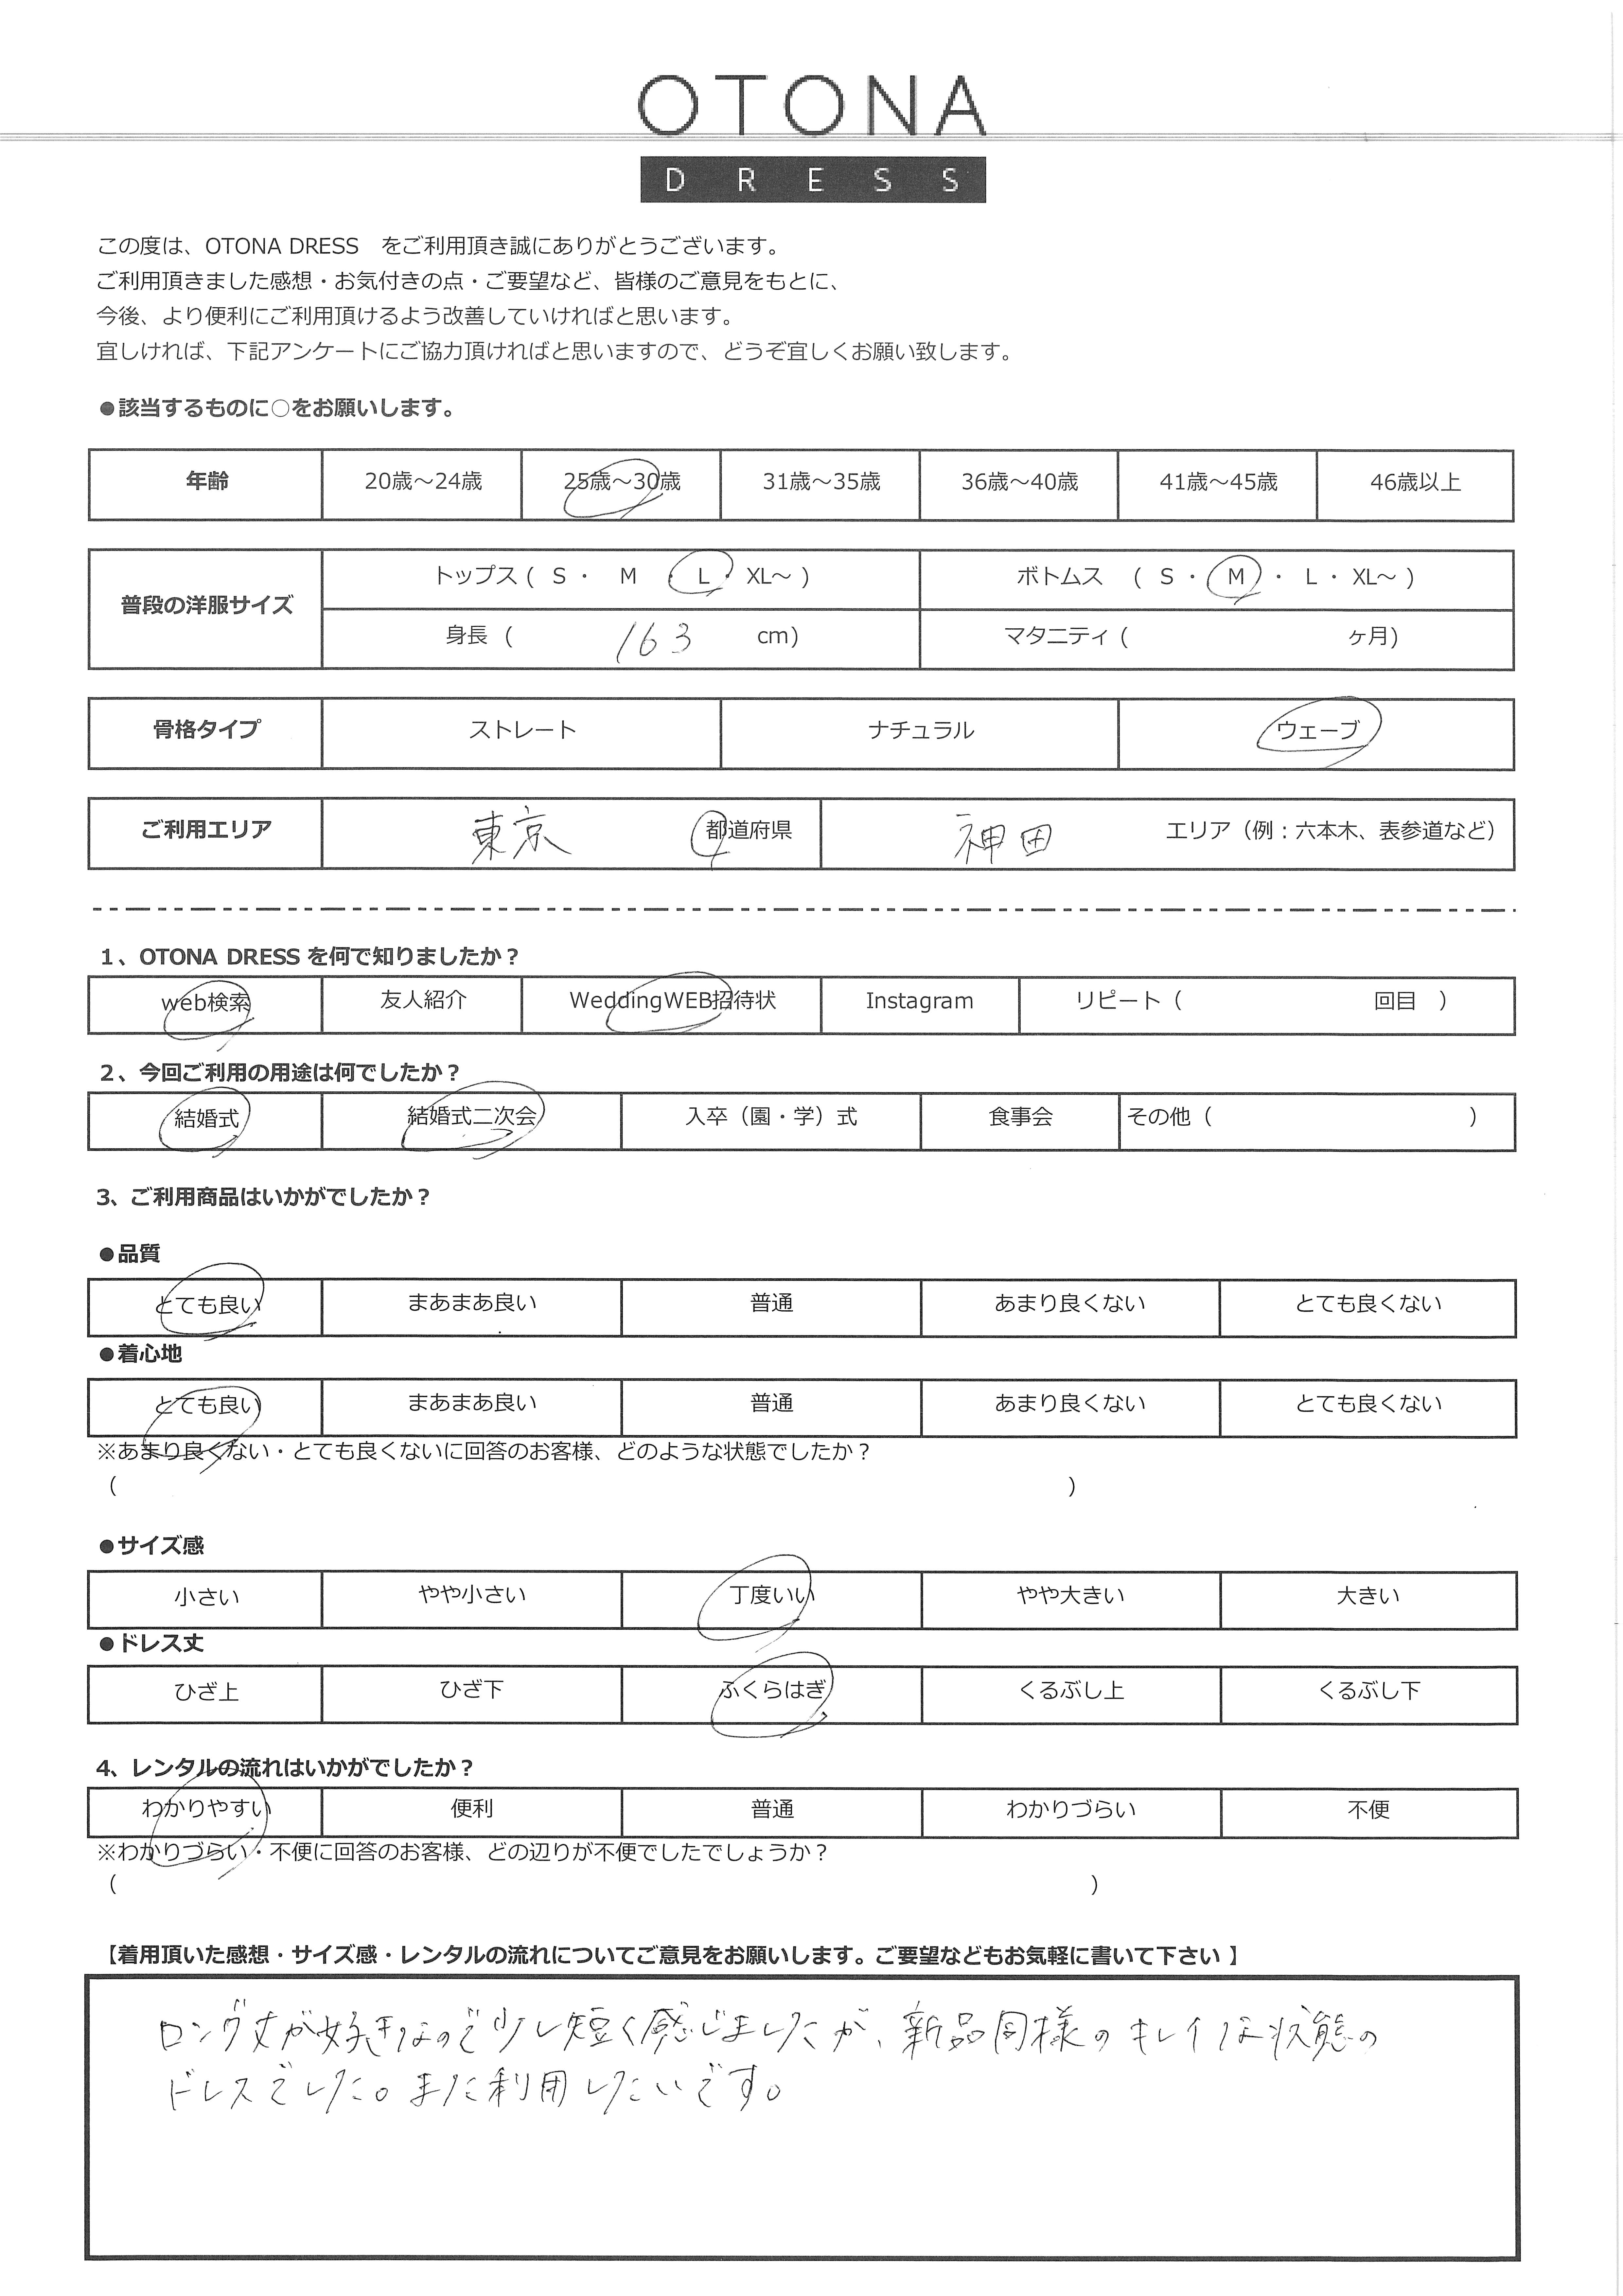 OTONA
DRESS
この度は、OTONA DRESS　をご利用頂き誠にありがとうございます。
ご利用頂きました感想・お気付きの点・ご要望など、皆様のご意見をもとに、
今後、より便利にご利用頂けるよう改善していければと思います。
宜しければ、下記アンケートにご協力頂ければと思いますので、どうぞ宜しくお願い致します。
●該当するものに○をお願いします。
年齢 20歳～24歳 25歳～30歳 31歳～35歳 36歳～40歳 41歳～45歳 46歳以上
普段の洋服サイズ トップス ( S ・ M ・ L ・ XL～ ) ボトムス ( S ・ M ・ L ・ XL～ )
身長 ( 163 cm) マタニティ ( ヶ月)
骨格タイプ ストレート ナチュラル ウェーブ
ご利用エリア 東京 都道府県 神田 エリア（例：六本木、表参道など）
1、OTONA DRESS を何で知りましたか？
web検索 友人紹介 WeddingWEB招待状 Instagram リピート（ 回目 ）
2、今回ご利用の用途は何でしたか？
結婚式 結婚式二次会 入卒（園・学）式 食事会 その他（ ）
3、ご利用商品はいかがでしたか？
●品質
とても良い まあまあ良い 普通 あまり良くない とても良くない
●着心地
とても良い まあまあ良い 普通 あまり良くない とても良くない
※あまり良くない・とても良くないに回答のお客様、どのような状態でしたか？
（ ）
●サイズ感
小さい やや小さい 丁度いい やや大きい 大きい
●ドレス丈
ひざ上 ひざ下 ふくらはぎ くるぶし上 くるぶし下
4、レンタルの流れはいかがでしたか？
わかりやすい 便利 普通 わかりづらい 不便
※わかりづらい・不便に回答のお客様、どの辺りが不便でしたでしょうか？
（ ）
【着用頂いた感想・サイズ感・レンタルの流れについてご意見をお願いします。ご要望などもお気軽に書いて下さい】
ロング丈が好きなので少し短く感じましたが、新品同様のキレイな状態の
ドレスでした。また利用したいです。